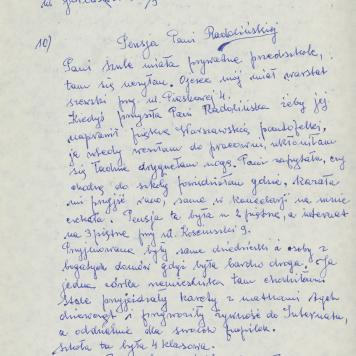 ul.
10) Pensja Pani Radolińskiej
Pani Szulc miała prywatne przedszkole,
tam się uczyłam. Ojciec mój miał warsztat
szewski przy ul. Piaskowej 4.
Kiedyś przyszła Pani Radolińska żeby jej
naprawił piękne Warszawskie pantofelki,
ja wtedy weszłam do pracowni, ukłoniłam
się ładnie drygnęłam nogą. Pani zapytała, czy
chodzę do szkoły powiedziałam gdzie. Kazała
mi przyjść rano, sama w kancelarji na mnie
czekała. Pensja ta była na 2 piętrze, a internat
na 3 piętrze przy ul. Kościuszki 9.
Przyjmowane były same dziedziczki i osoby z
bogatych domów gdyż była bardzo droga. Ja
jedna córka rzemieślnika tam chodziłam
stale przyjeżdżały karety z matkami tych
dziewcząt i przywoziły żywność do Internatu,
a oddzielnie dla swoich pupilek.
Szkoła ta była 4 klasowa.